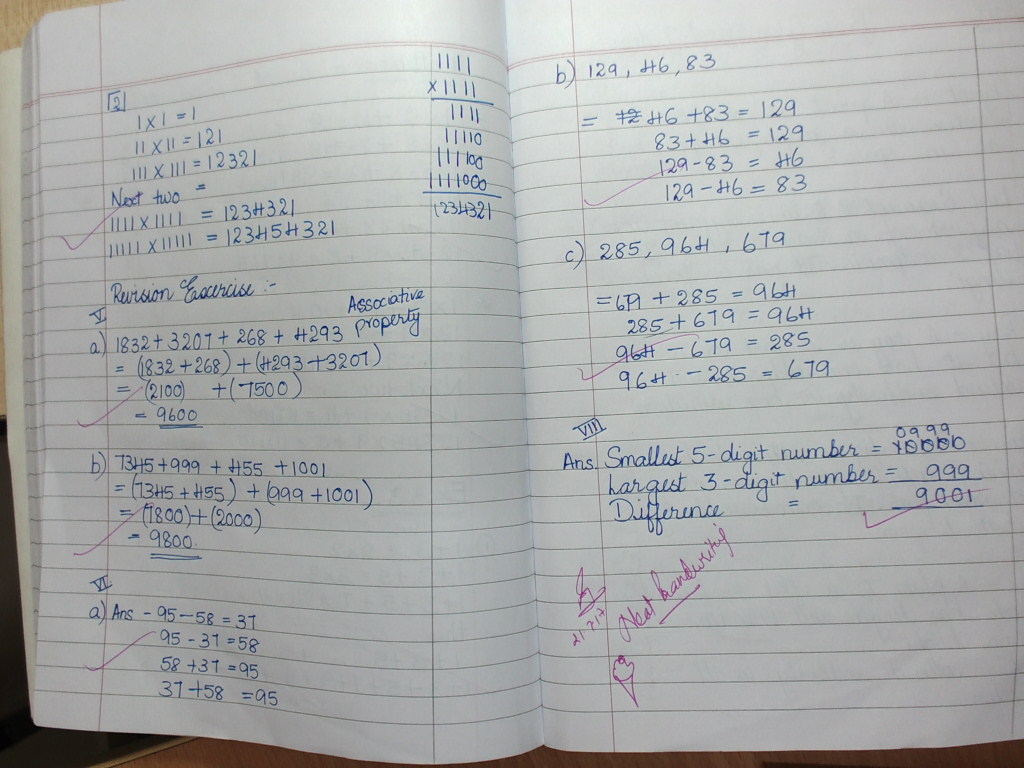 2
1 x 1 = 1
11 x 11 = 121
111 x 111 = 12321
Next two =
1111 x 1111 = 1234321
11111 x 11111 = 123454321
1111
x 1111
1111
11110
111100
1111000
1234321
Revision Exercise :-
V
Associative
property
a) 1832 + 3207 + 268 + 4293
= (1832 + 268) + (4293 + 3207)
= (2100) + (7500)
= 9600
b) 7345 + 999 + 455 + 1001
= (7345 + 455) + (999 + 1001)
= (7800) + (2000)
= 9800
VI
a) Ans - 95 - 58 = 37
95 - 37 = 58
58 + 37 = 95
37 + 58 = 95
b) 129, 46, 83
= 46 + 83 = 129
83 + 46 = 129
129 - 83 = 46
129 - 46 = 83
c) 285, 964, 679
= 679 + 285 = 964
285 + 679 = 964
964 - 679 = 285
964 - 285 = 679
VIII
0999
Ans Smallest 5-digit number = 10000
Largest 3-digit number = 999
Difference = 9001
Neat handwriting